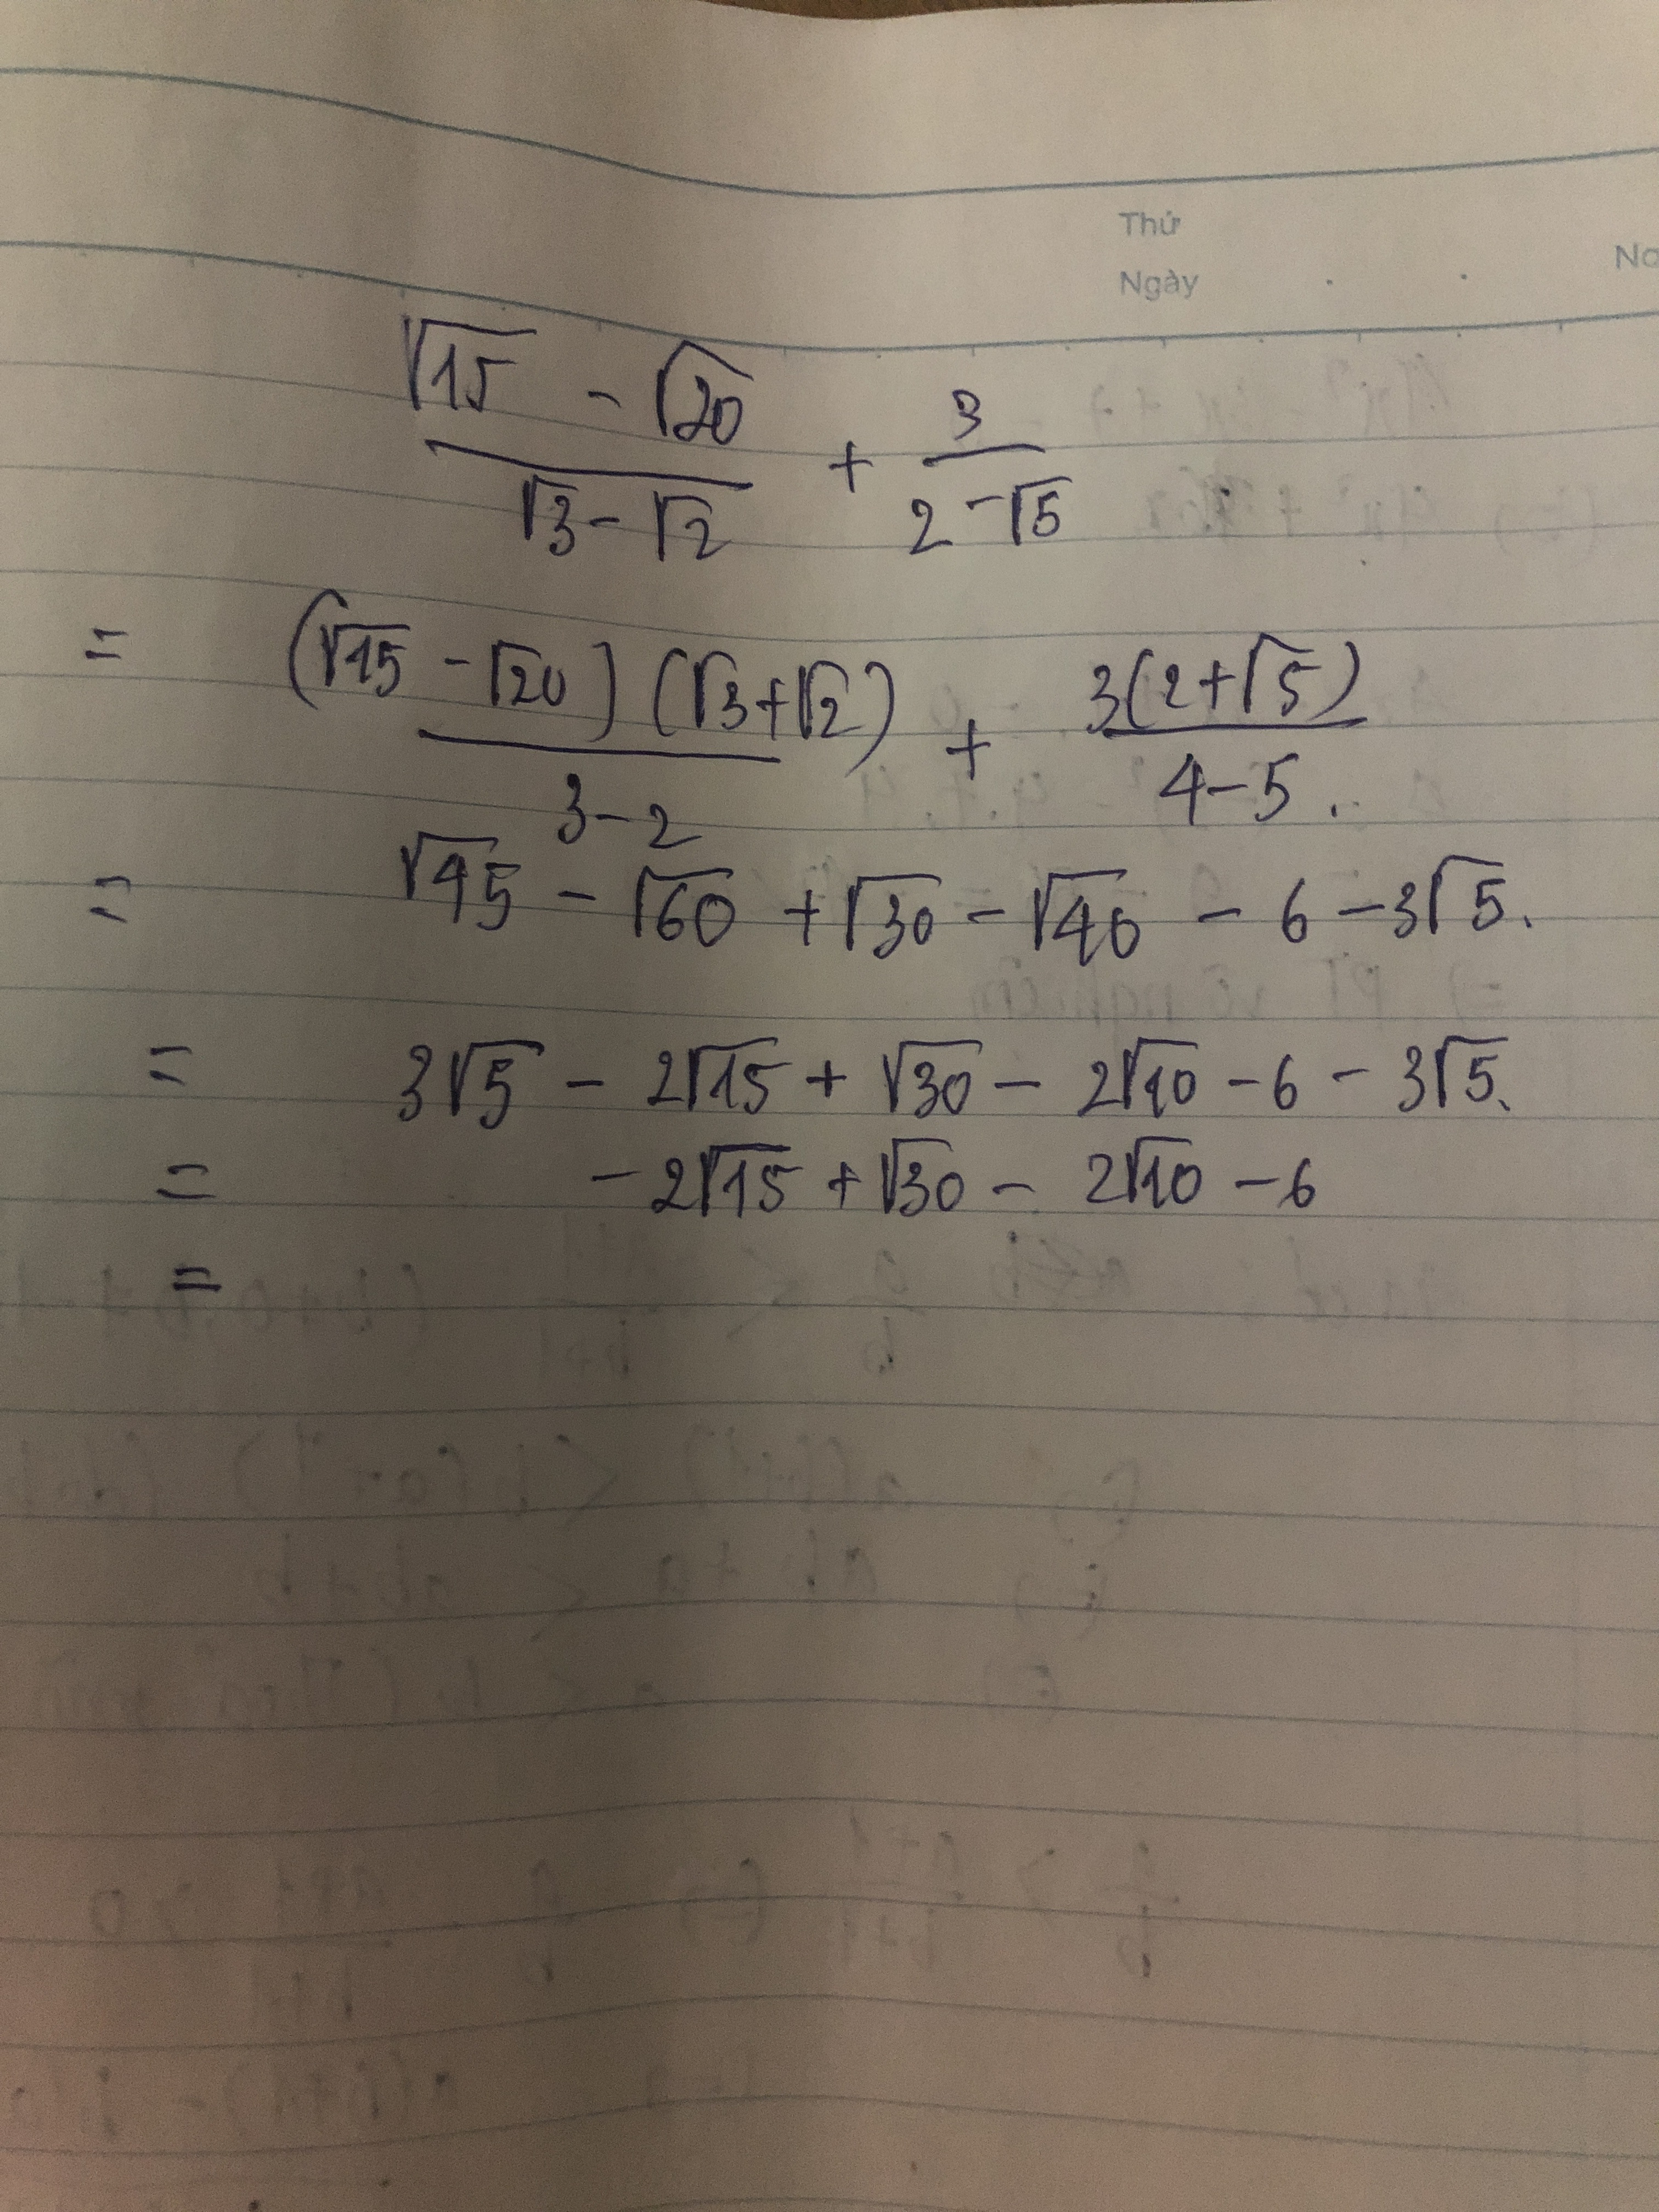 Thứ
Ngày
No
(√15 - √20)/(√3 - √2) + 3/(2 - √5)
= (√15 - √20)(√3 + √2)/(3 - 2) + 3(2 + √5)/(4 - 5).
= √45 - √60 + √30 - √40 - 6 - 3√5.
= 3√5 - 2√15 + √30 - 2√10 - 6 - 3√5.
= - 2√15 + √30 - 2√10 - 6
=